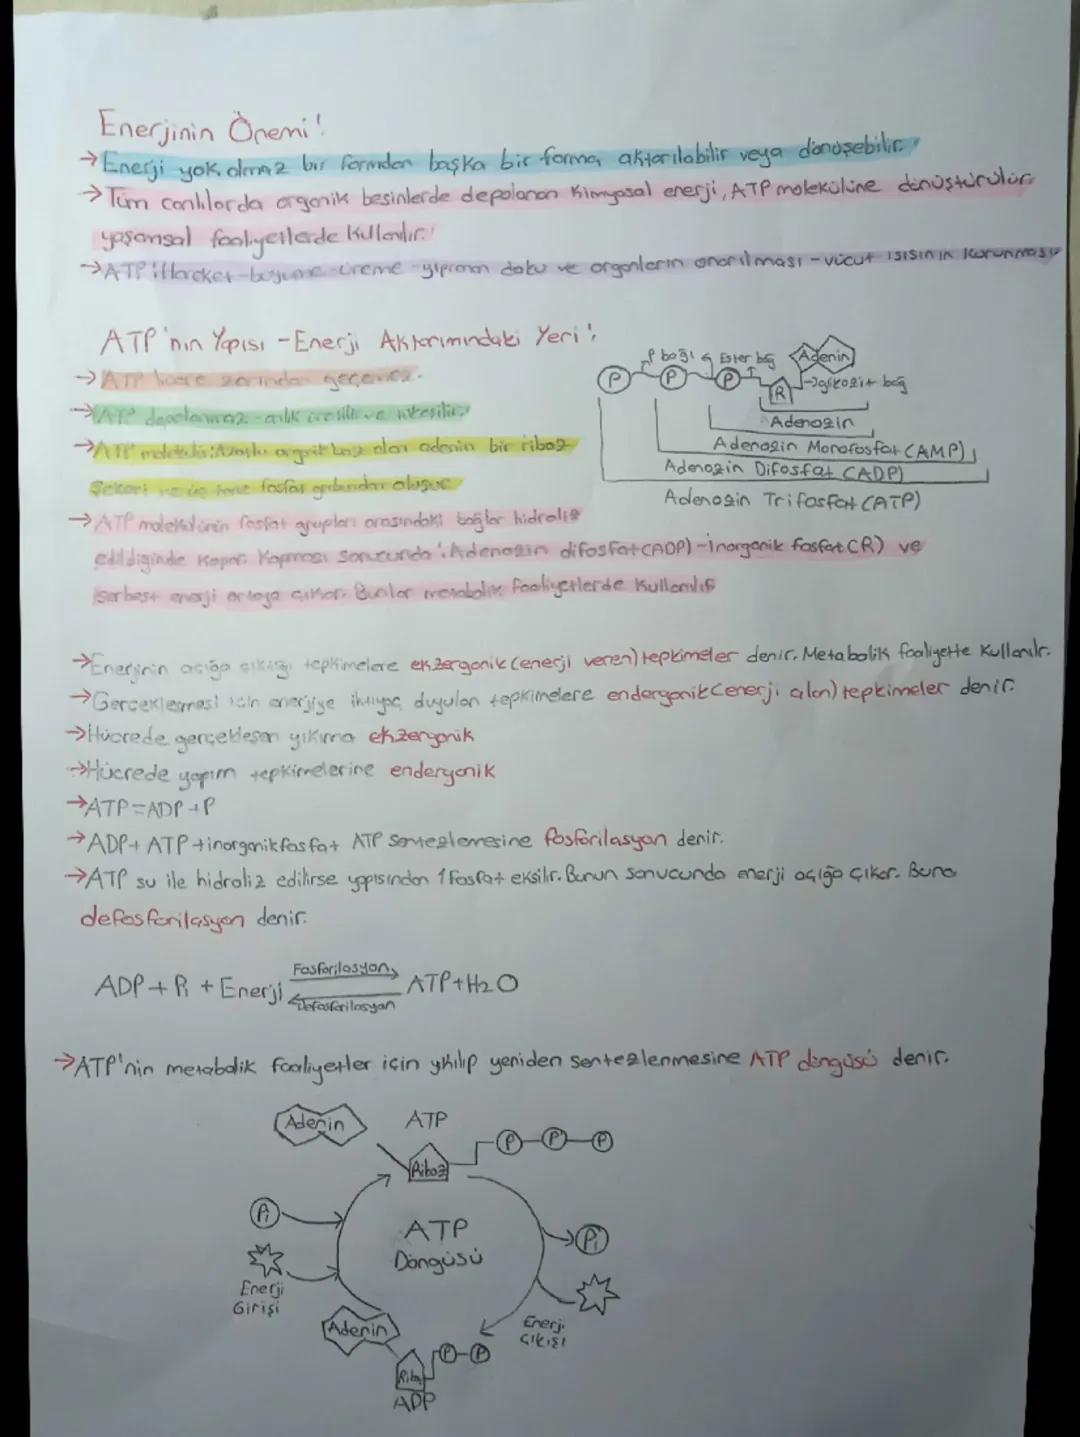 Enerjinin Önemi!
→Enerji yok olmaz bir formdan başka bir forma, aktarılabilir veya dönüşebilir.
→Tüm canlılarda organik besinlerde depolanan kimyasal enerji, ATP molekülüne dönüştürülür
yaşamsal faaliyetlerde kullanılır.
→ATP:Hareket-büyüme-üreme-yıpranan doku ve organların onarılması-vücut ısısının korunması
ATP'nin Yapısı-Enerji Aktarımındaki Yeri!
→ATP hücre zarından geçemez.
→ATP depolanmaz-anlık üretilir ve tüketilir.
→ATP molekülü:Azotlu organik baz olan adenin bir riboz
şekeri ve üç tane fosfat grubundan oluşur
→ATP molekülünün fosfat grupları arasındaki bağlar hidroliz
edildiğinde kopar. Kopması sonucunda:Adenozin difosfat(ADP)-inorganik fosfat(Pi) ve
serbest enerji ortaya çıkar. Bunlar metabolik faaliyetlerde kullanılır
P bağı Ester bağ Adenin
P P P R →Glikozit bağ
Adenozin
Adenozin Monofosfat (AMP)
Adenozin Difosfat (ADP)
Adenozin Trifosfat (ATP)
→Enerjinin açığa çıktığı tepkimelere ekzergonik(enerji veren)tepkimeler denir. Metabolik faaliyette kullanılır.
→Gerçekleşmesi için enerjiye ihtiyaç duyulan tepkimelere endergonik(enerji alan)tepkimeler denir.
→Hücrede gerçekleşen yıkıma ekzergonik
→Hücrede yapım tepkimelerine endergonik
→ATP=ADP+P
→ADP+ ATP+inorganik fosfat ATP sentezlemesine fosforilasyon denir.
→ATP su ile hidroliz edilirse yapısından 1 fosfat eksilir. Bunun sonucunda enerji açığa çıkar. Buna
defosforilasyon denir.
ADP + Pi + Enerji Fosforilasyon ATP+H2O
Defosforilasyon
→ATP'nin metabolik faaliyetler için yıkılıp yeniden sentezlenmesine ATP döngüsü denir.
Adenin ATP
Riboz P P P
Pi
ATP
Döngüsü
Pi
Enerji
Girişi
Enerji
Çıkışı
Adenin
Riboz P P
ADP